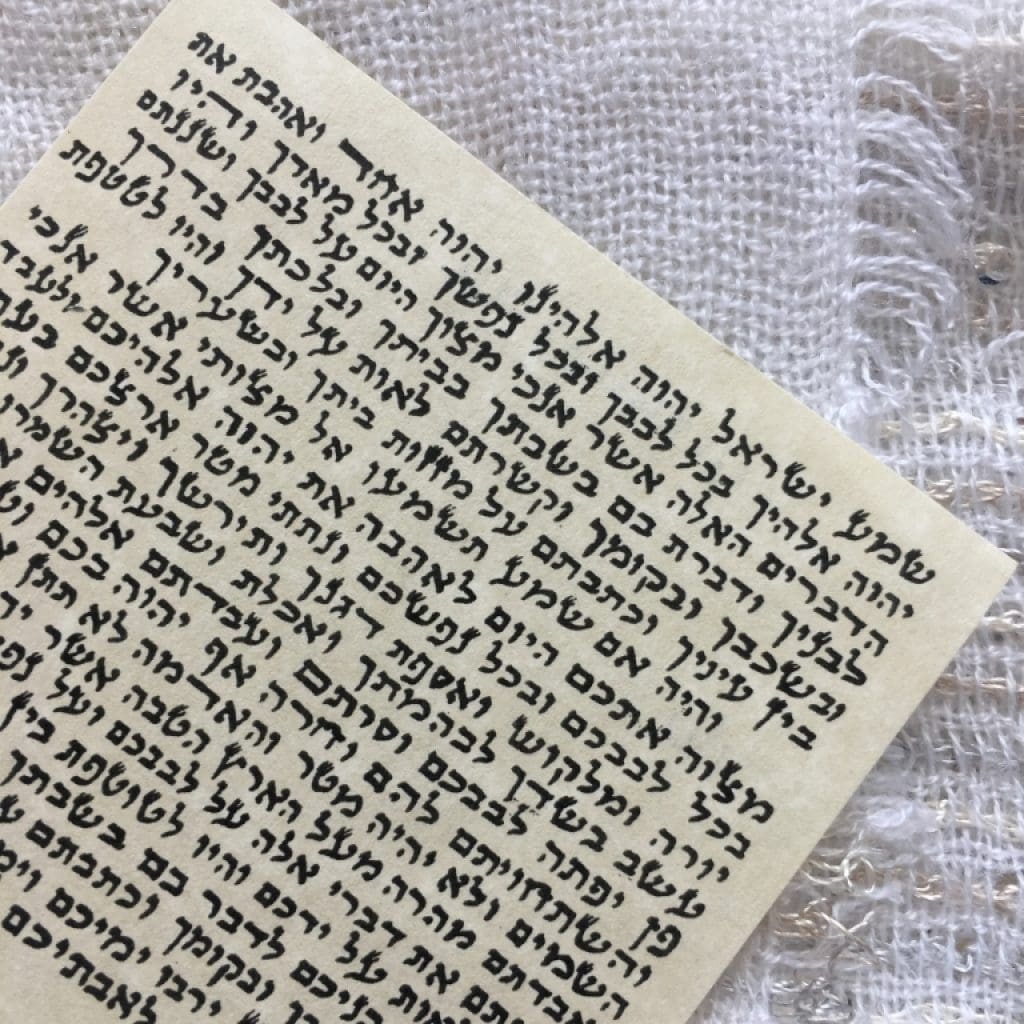 שמע ישראל יהוה אלהינו יהוה אחד ואהבת את
יהוה אלהיך בכל לבבך ובכל נפשך ובכל מאדך והיו
הדברים האלה אשר אנכי מצוך היום על לבבך ושננתם
לבניך ודברת בם בשבתך בביתך ובלכתך בדרך
ובשכבך ובקומך וקשרתם לאות על ידך והיו לטטפת
בין עיניך וכתבתם על מזזות ביתך ובשעריך
והיה אם שמע תשמעו אל מצותי אשר אנכי
מצוה אתכם היום לאהבה את יהוה אלהיכם ולעבד
בכל לבבכם ובכל נפשכם ונתתי מטר ארצכם בעת
יורה ומלקוש ואספת דגנך ותירשך ויצהרך
עשב בשדך לבהמתך ואכלת ושבעת השמרו
פן יפתה לבבכם וסרתם ועבדתם אלהים
והשתחויתם להם וחרה אף יהוה בכם
השמים ולא יהיה מטר והאדמה לא תתן
ואבדתם מהרה מעל הארץ הטבה אשר
את דברי אלה על לבבכם ועל
לאות על ידכם והיו לטוטפת בין
בניכם לדבר בם בשבתך
ובקומך וכתבתם
ירבו ימיכם
לאבתיכם